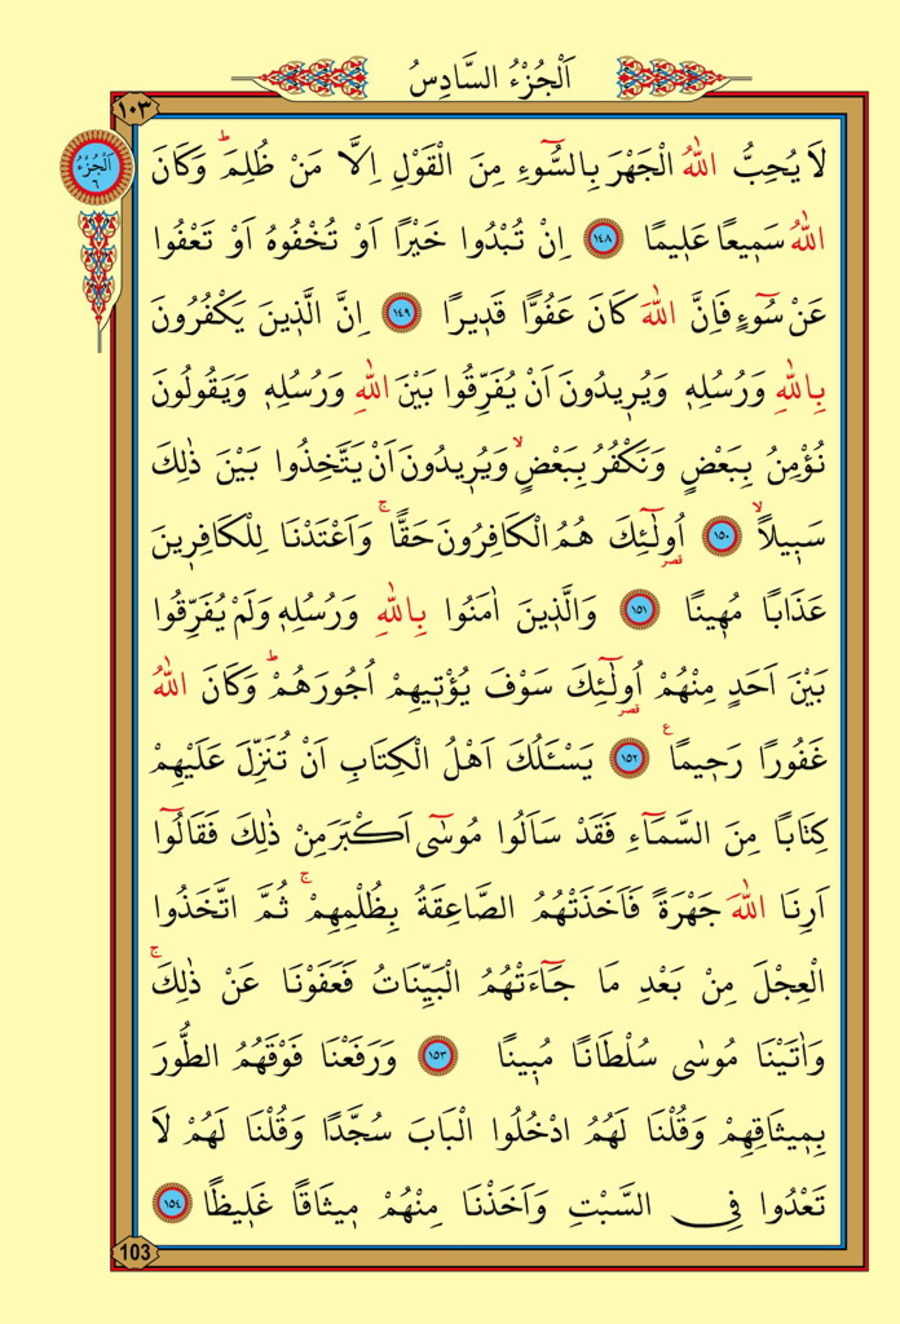 اَلْجُزْءُ السَّادِسُ
١٠٣
اَلْجُزْءُ
٦
لَا يُحِبُّ اللّٰهُ الْجَهْرَ بِالسُّٓوءِ مِنَ الْقَوْلِ اِلَّا مَنْ ظُلِمَۜ وَكَانَ
اللّٰهُ سَم۪يعًا عَل۪يمًا ١٤٨ اِنْ تُبْدُوا خَيْرًا اَوْ تُخْفُوهُ اَوْ تَعْفُوا
عَنْ سُٓوءٍ فَاِنَّ اللّٰهَ كَانَ عَفُوًّا قَد۪يرًا ١٤٩ اِنَّ الَّذ۪ينَ يَكْفُرُونَ
بِاللّٰهِ وَرُسُلِه۪ وَيُر۪يدُونَ اَنْ يُفَرِّقُوا بَيْنَ اللّٰهِ وَرُسُلِه۪ وَيَقُولُونَ
نُؤْمِنُ بِبَعْضٍ وَنَكْفُرُ بِبَعْضٍۙ وَيُر۪يدُونَ اَنْ يَتَّخِذُوا بَيْنَ ذٰلِكَ
سَب۪يلًاۙ ١٥٠ اُو۬لٰٓئِكَ هُمُ الْكَافِرُونَ حَقًّاۚ وَاَعْتَدْنَا لِلْكَافِر۪ينَ
قصر
عَذَابًا مُه۪ينًا ١٥١ وَالَّذ۪ينَ اٰمَنُوا بِاللّٰهِ وَرُسُلِه۪ وَلَمْ يُفَرِّقُوا
بَيْنَ اَحَدٍ مِنْهُمْ اُو۬لٰٓئِكَ سَوْفَ يُؤْت۪يهِمْ اُجُورَهُمْۜ وَكَانَ اللّٰهُ
قصر
غَفُورًا رَح۪يمًا ع ١٥٢ يَسْـَٔلُكَ اَهْلُ الْكِتَابِ اَنْ تُنَزِّلَ عَلَيْهِمْ
كِتَابًا مِنَ السَّمَٓاءِ فَقَدْ سَاَلُوا مُوسٰٓى اَكْبَرَ مِنْ ذٰلِكَ فَقَالُٓوا
اَرِنَا اللّٰهَ جَهْرَةً فَاَخَذَتْهُمُ الصَّاعِقَةُ بِظُلْمِهِمْۚ ثُمَّ اتَّخَذُوا
الْعِجْلَ مِنْ بَعْدِ مَا جَٓاءَتْهُمُ الْبَيِّنَاتُ فَعَفَوْنَا عَنْ ذٰلِكَۚ
وَاٰتَيْنَا مُوسٰى سُلْطَانًا مُب۪ينًا ١٥٣ وَرَفَعْنَا فَوْقَهُمُ الطُّورَ
بِم۪يثَاقِهِمْ وَقُلْنَا لَهُمُ ادْخُلُوا الْبَابَ سُجَّدًا وَقُلْنَا لَهُمْ لَا
تَعْدُوا فِي السَّبْتِ وَاَخَذْنَا مِنْهُمْ م۪يثَاقًا غَل۪يظًا ١٥٤
103